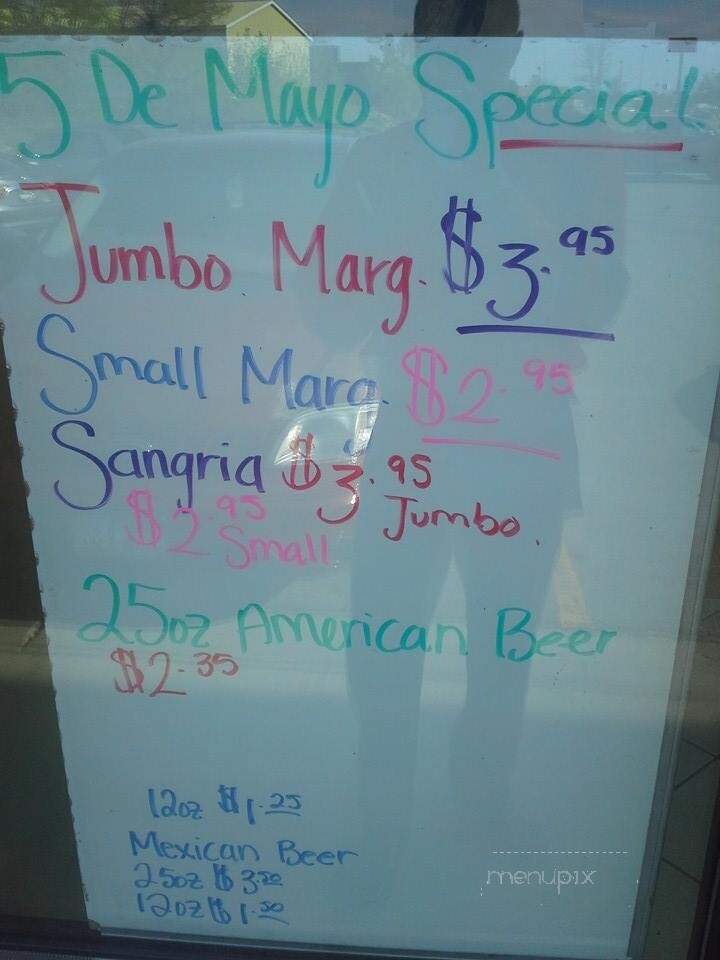 5 De Mayo Special
Jumbo Marg. $3.95
Small Marg. $2.95
Sangria $3.95
Jumbo.
$2.95
Small
25oz American Beer
$2.35
12oz $1.25
Mexican Beer
25oz $3.50
12oz $1.50
menupix